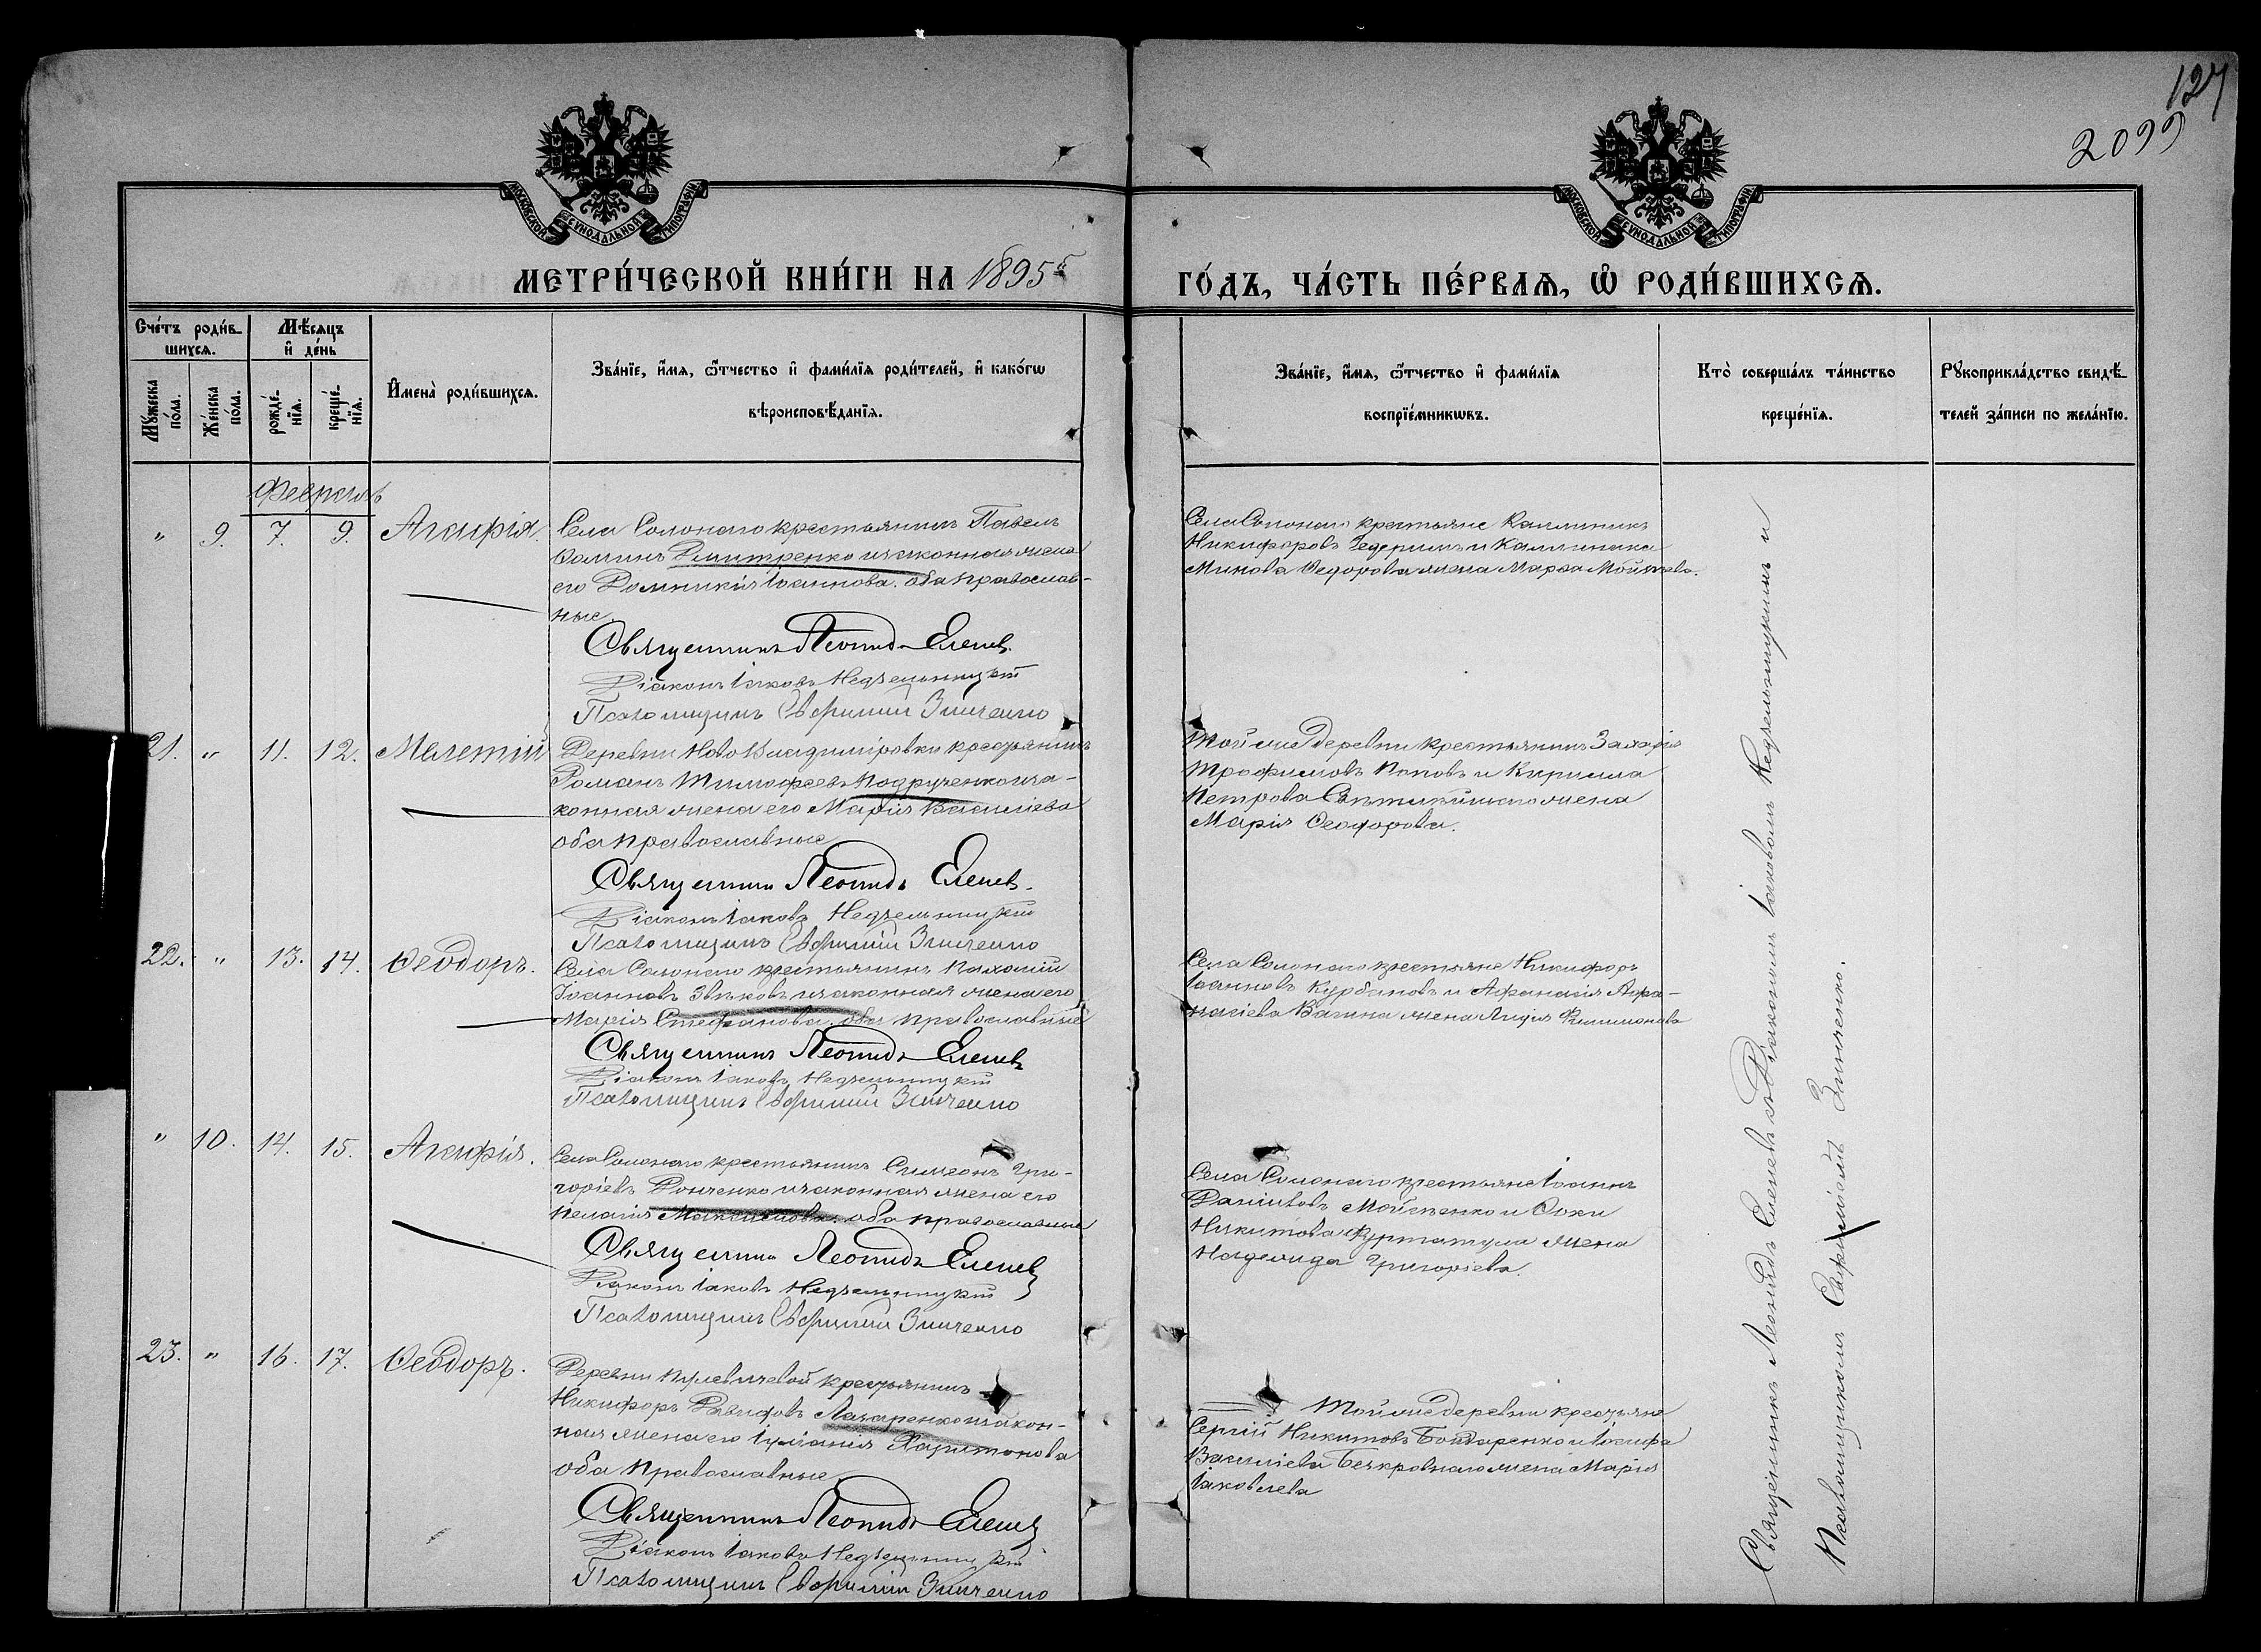 127
2099
МОСКОВСКОЙ СѴНОДАЛЬНОЙ ТИПОГРАФІИ
МОСКОВСКОЙ СѴНОДАЛЬНОЙ ТИПОГРАФІИ
МЕТРИ́ЧЕСКОЙ КНИ́ГИ НА 1895 г
ГО́ДЪ, ЧА́СТЬ ПЕ́РВАѦ, Ѡ҆ РОДИ́ВШИХСѦ.
Сче́тъ роди́в-
шихсѧ.
Мꙋ́жеска по́ла.
Же́нска по́ла.
Мѣ́сѧцъ
и҆ де́нь
рожде́-
нїѧ.
креще́-
нїѧ.
И҆мена̀ роди́вшихсѧ.
Зва́нїе, и҆́мѧ, ѻ҆́тчество и҆ фами́лїѧ роди́телей, и҆ како́гѡ
вѣроисповѣ́данїѧ.
Зва́нїе, и҆́мѧ, ѻ҆́тчество и҆ фами́лїѧ
воспрїе́мникѡвъ.
Кто̀ соверша́лъ та́инство
креще́нїѧ.
Рꙋкоприкла́дство свидѣ́-
телей за́писи по жела́нїю.
Февраль
" 9. 7. 9. Агафія.
Села Солонаго крестьянинъ Павелъ
Ѳоминъ Дмитренко и законная жена
его Домникія Іоаннова. оба православ-
ные
Священникъ Леонидъ Еленевъ.
Діаконъ Іаковъ Недзельницкій
Псаломщикъ Евфимій Зинченко
Села Солонаго крестьяне Каллиникъ
Никифоровъ и Каллиника
Минова Ѳедорова жена Марѳа
21. " 11. 12. Мелетій
Деревни Ново Владиміровки крестьянинъ
Романъ Тимофеевъ Подрученко и за-
конная жена его Марія Василіева
оба православные
Священникъ Леонидъ Еленевъ.
Діаконъ Іаковъ Недзельницкій
Псаломщикъ Евфимій Зинченко
Той же деревни крестьянинъ Захарія
Трофимовъ Поповъ и Кирилла
Петрова жена
Марія Ѳеодорова.
22. " 13. 14. Ѳеодоръ.
Села Солонаго крестьянинъ Пахомій
Іоанновъ Звѣковъ и законная жена его
Марія Стефанова. оба православные
Священникъ Леонидъ Еленевъ
Діаконъ Іаковъ Недзельницкій
Псаломщикъ Евфимій Зинченко
Села Солонаго крестьяне Никифоръ
Іоанновъ Курбановъ и Аѳанасія Аѳа-
насіева Вагина жена Лидія Филимонова
" 10. 14. 15. Агафія.
Села Солонаго крестьянинъ Симеонъ Гри-
горіевъ Донченко и законная жена его
Пелагія Максимова. оба православные
Священникъ Леонидъ Еленевъ
Діаконъ Іаковъ Недзельницкій
Псаломщикъ Евфимій Зинченко
Села Солонаго крестьяне Іоаннъ
Даніиловъ Мойсѣенко и Ѳоки
Никитова жена
Надежда Григоріева.
23. " 16. 17. Ѳеодоръ.
Деревни крестьянинъ
Никифоръ Давидовъ Лазаренко и закон-
ная жена его Іуліанія Харитонова
оба православные
Священникъ Леонидъ Еленевъ
Діаконъ Іаковъ Недзельницкій
Псаломщикъ Евфимій Зинченко
Той же деревни крестьяне
Сергій Никитовъ Бондаренко и Іосифа
Василіева Безкровнаго жена Марія
Іаковлева
Священникъ Леонидъ Еленевъ съ Діакономъ Іаковомъ Недзельницкимъ и
Псаломщикомъ Евфиміемъ Зинченко.